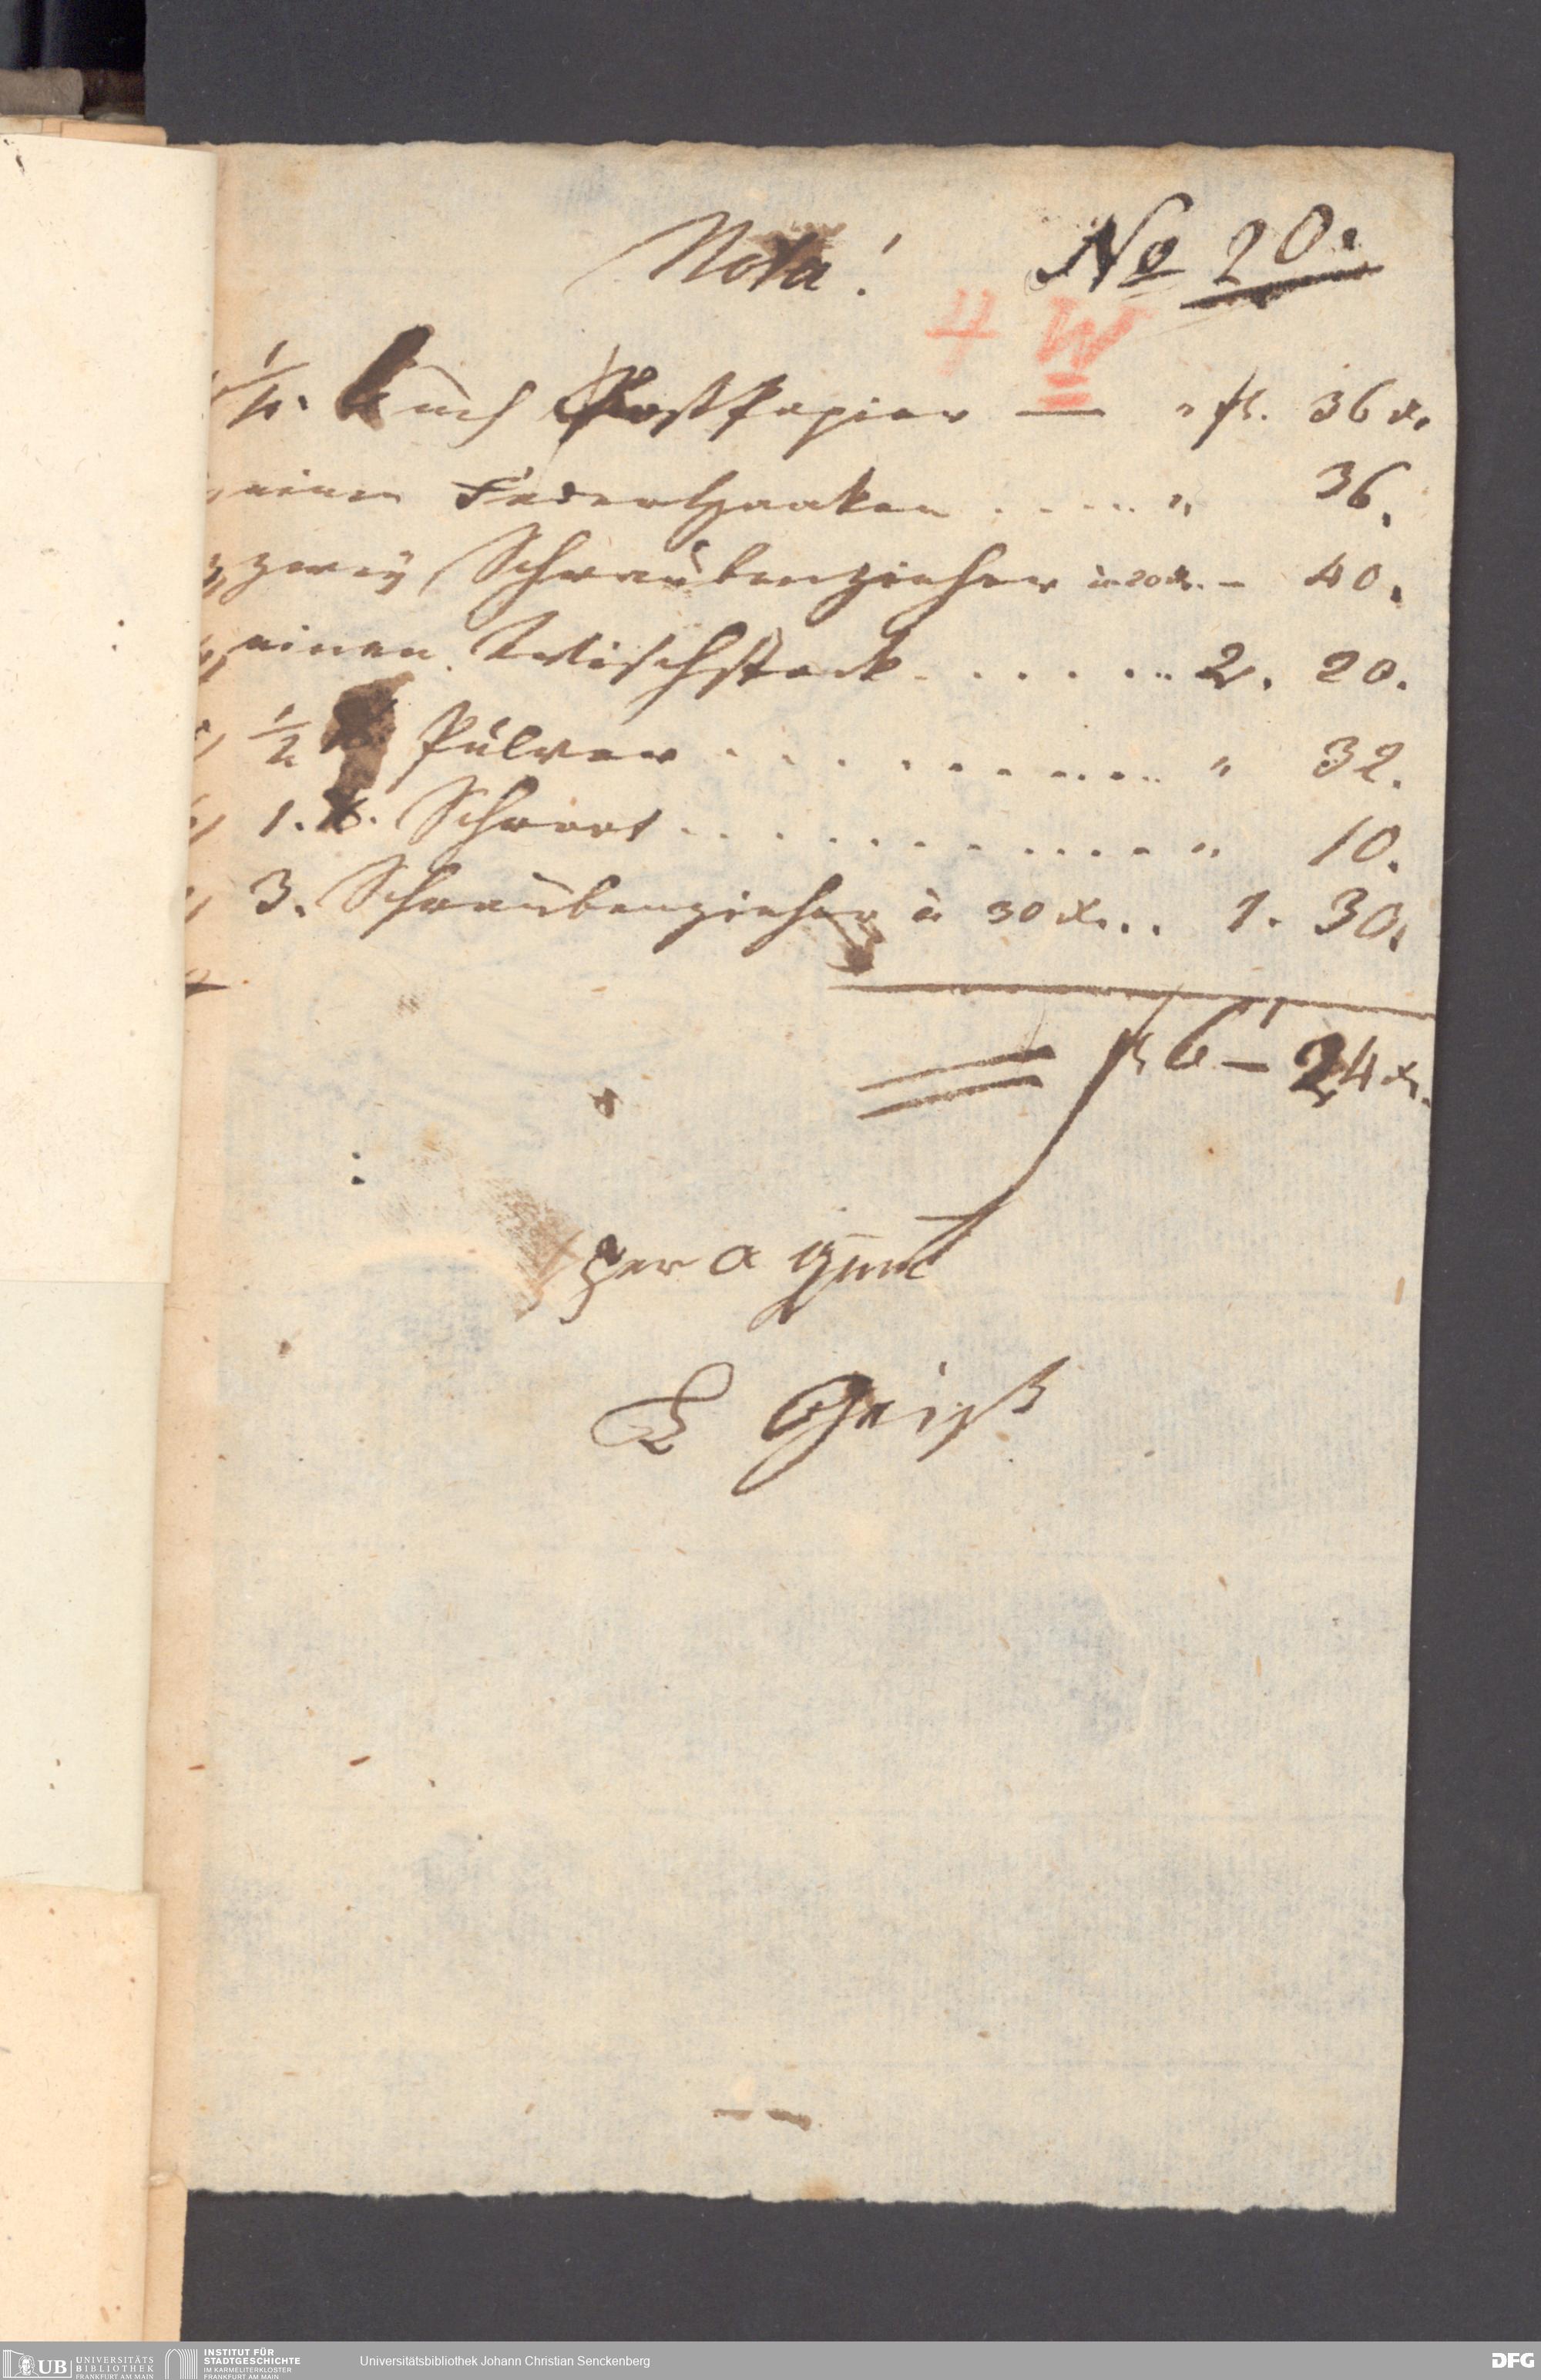 Nota!
No 20.
4 W
Buch Postpapier — " fl. 36 x.
einen Federhaaken ..... " 36.
3, zweÿ Schraubenzieher à 20 x. – 40.
4, einen Wischstock ....... 2. 20.
5, 1/2 ℔ Pulver ........... " 32.
6, 1. ℔. Schroot ........... " 10.
7, 3. Schraubenzieher à 30 x... 1. 30.
fl 6 – 24 x.
per aquit
E Geiß
UB UNIVERSITÄTS BIBLIOTHEK FRANKFURT AM MAIN
INSTITUT FÜR STADTGESCHICHTE IM KARMELITERKLOSTER FRANKFURT AM MAIN
Universitätsbibliothek Johann Christian Senckenberg
DFG